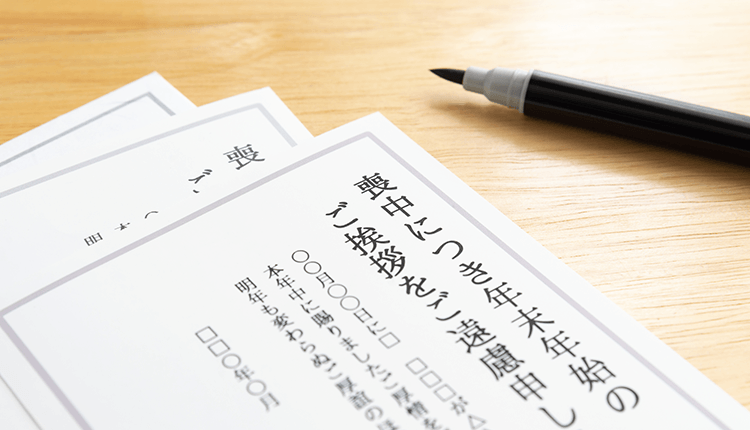 喪中につき年末年始の
ご挨拶をご遠慮申し
〇〇月〇〇日に□ □□□が△
本年中に賜りましたご厚情を
明年も変わらぬご厚誼のほ
□□〇年〇月
喪
ご